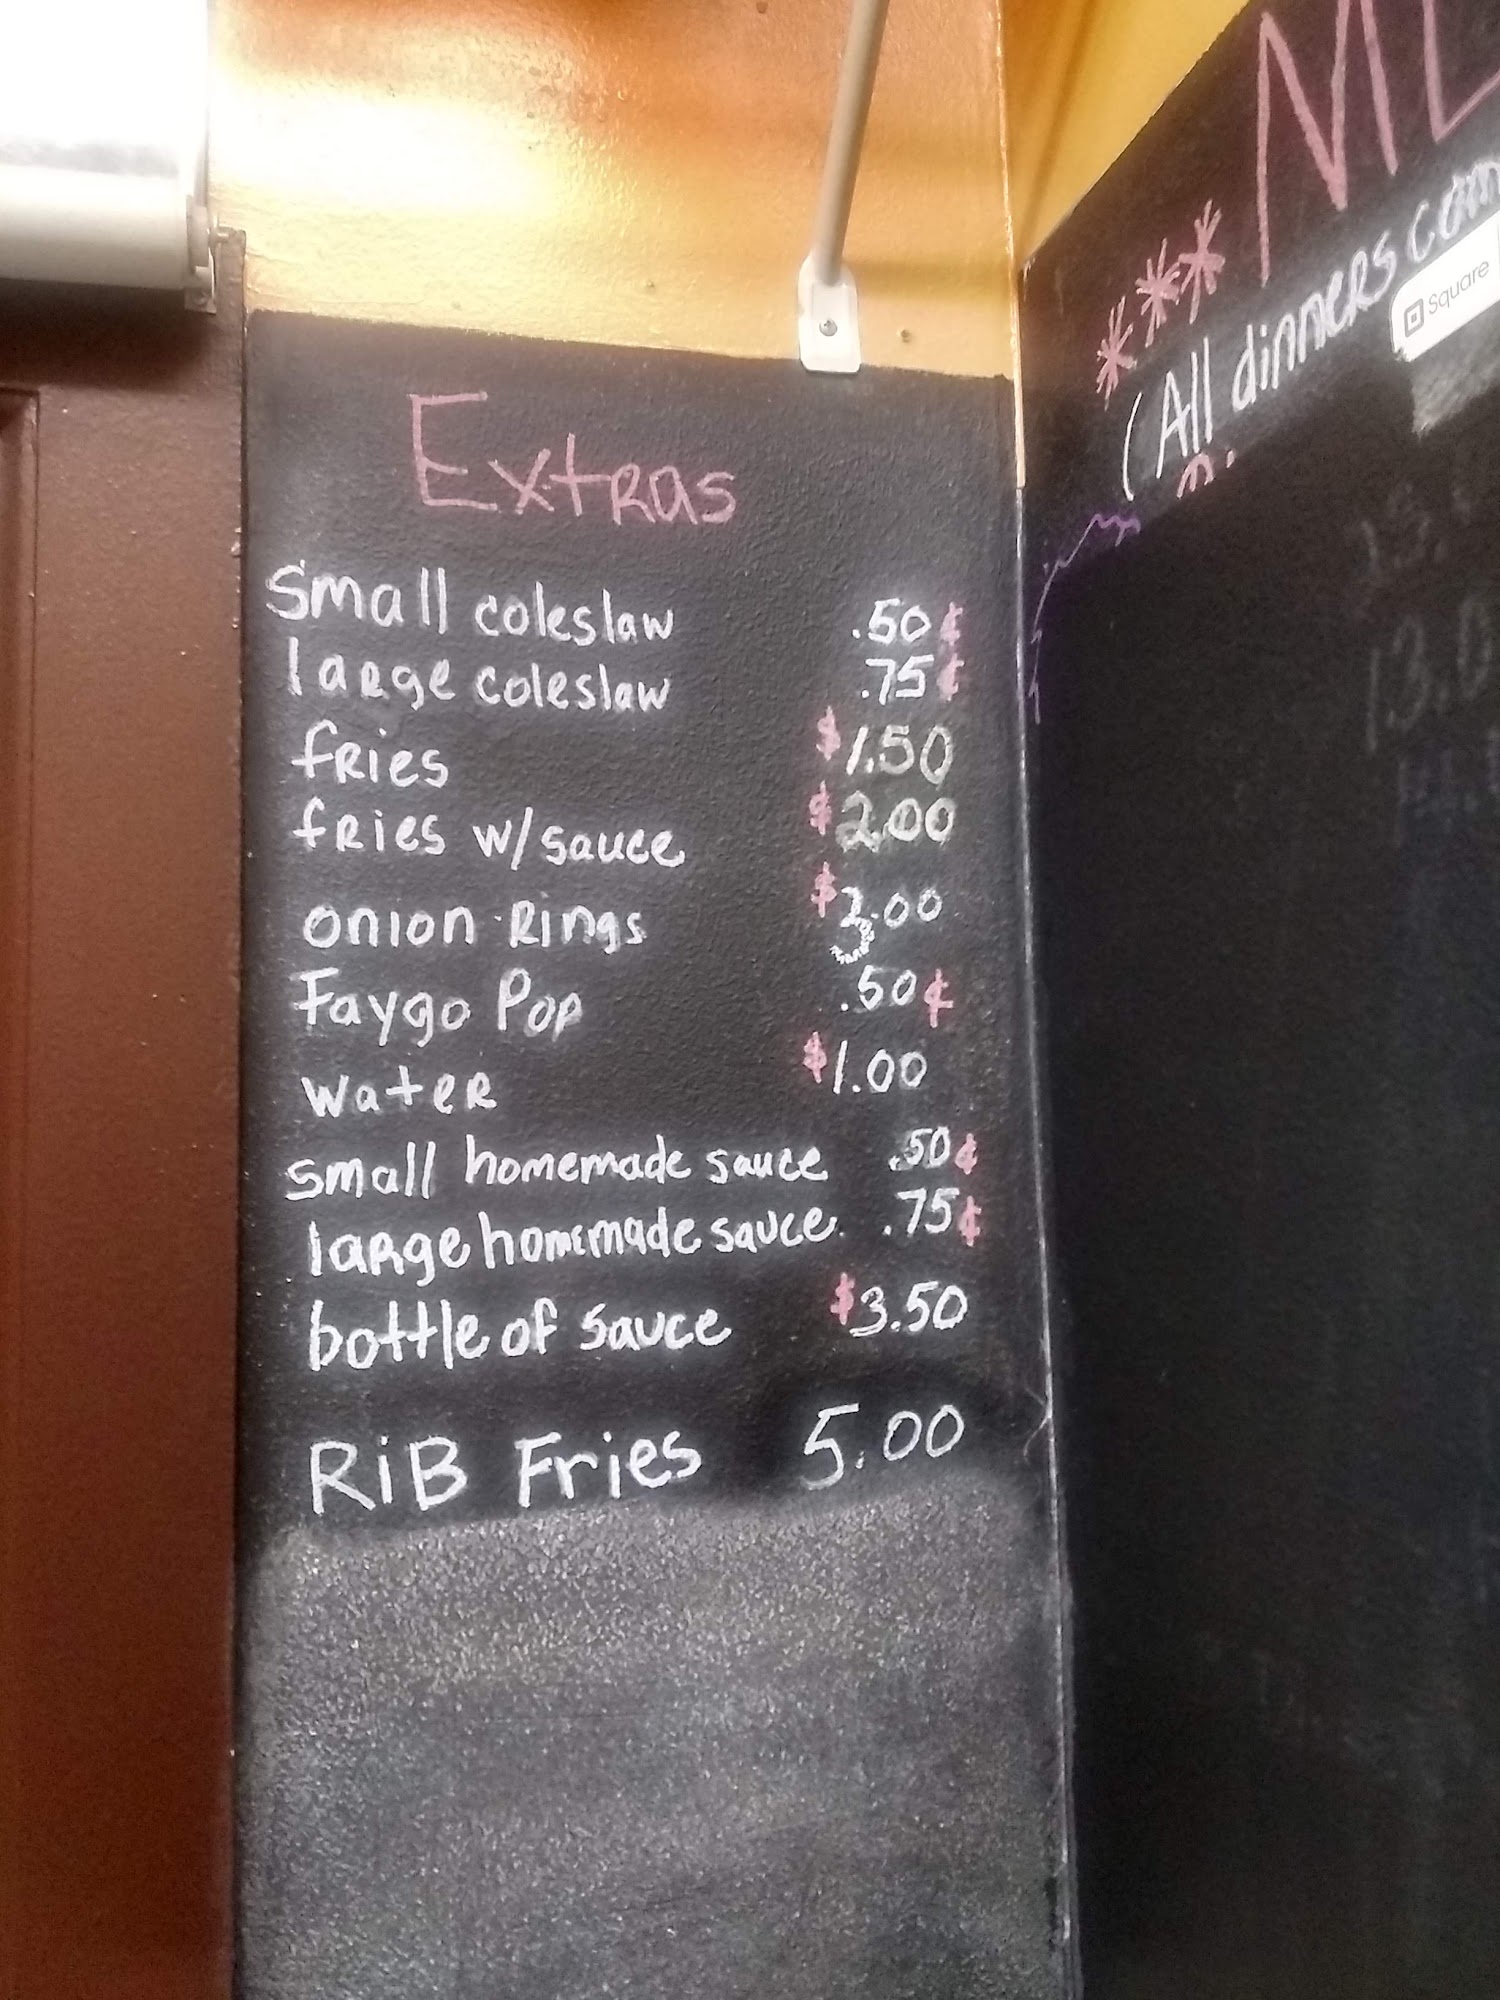 Extras
small coleslaw .50¢
large coleslaw .75¢
fries $1.50
fries w/sauce $2.00
onion Rings $3.00
Faygo Pop .50¢
water $1.00
small homemade sauce .50¢
large homemade sauce .75¢
bottle of sauce $3.50
RiB Fries 5.00
***
(All dinners com
Square
13.0